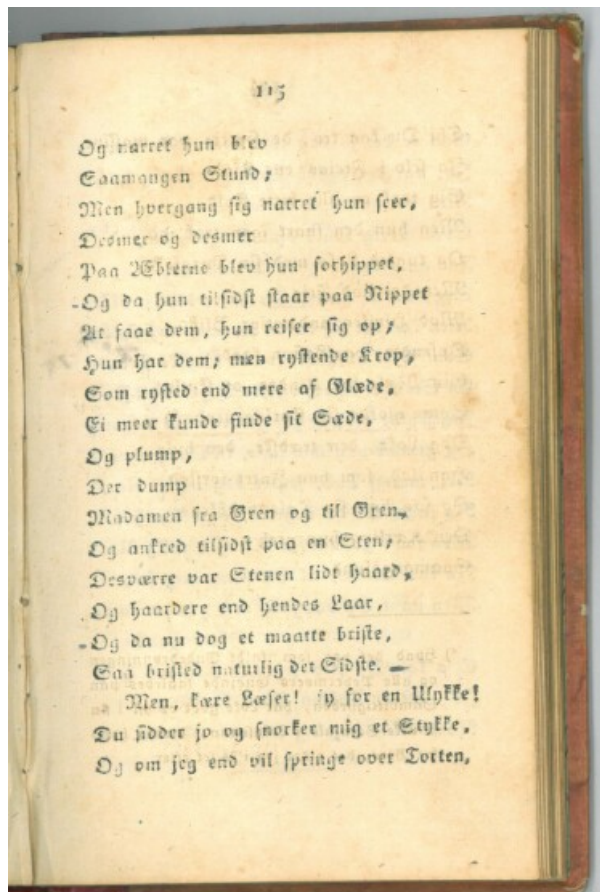 115
Og narret hun blev
Saamangen Stund;
Men hvergang sig narret hun seer,
Desmer og desmer
Paa Æblerne blev hun forhippet,
-Og da hun tilsidst staar paa Nippet
At faae dem, hun reiser sig op;
Hun har dem; men rystende Krop,
Som rysted end mere af Glæde,
Ei meer kunde finde sit Sæde,
Og plump,
Der dump
Madamen fra Gren og til Gren,
Og ankred tilsidst paa en Sten;
Desværre var Stenen lidt haard,
Og haardere end hendes Laar,
-Og da nu dog et maatte briste,
Saa bristed naturlig det Sidste. —
Men, kære Læser! fy for en Ulykke!
Du sidder jo og snorker mig et Stykke,
Og om jeg end vil springe over Torten,